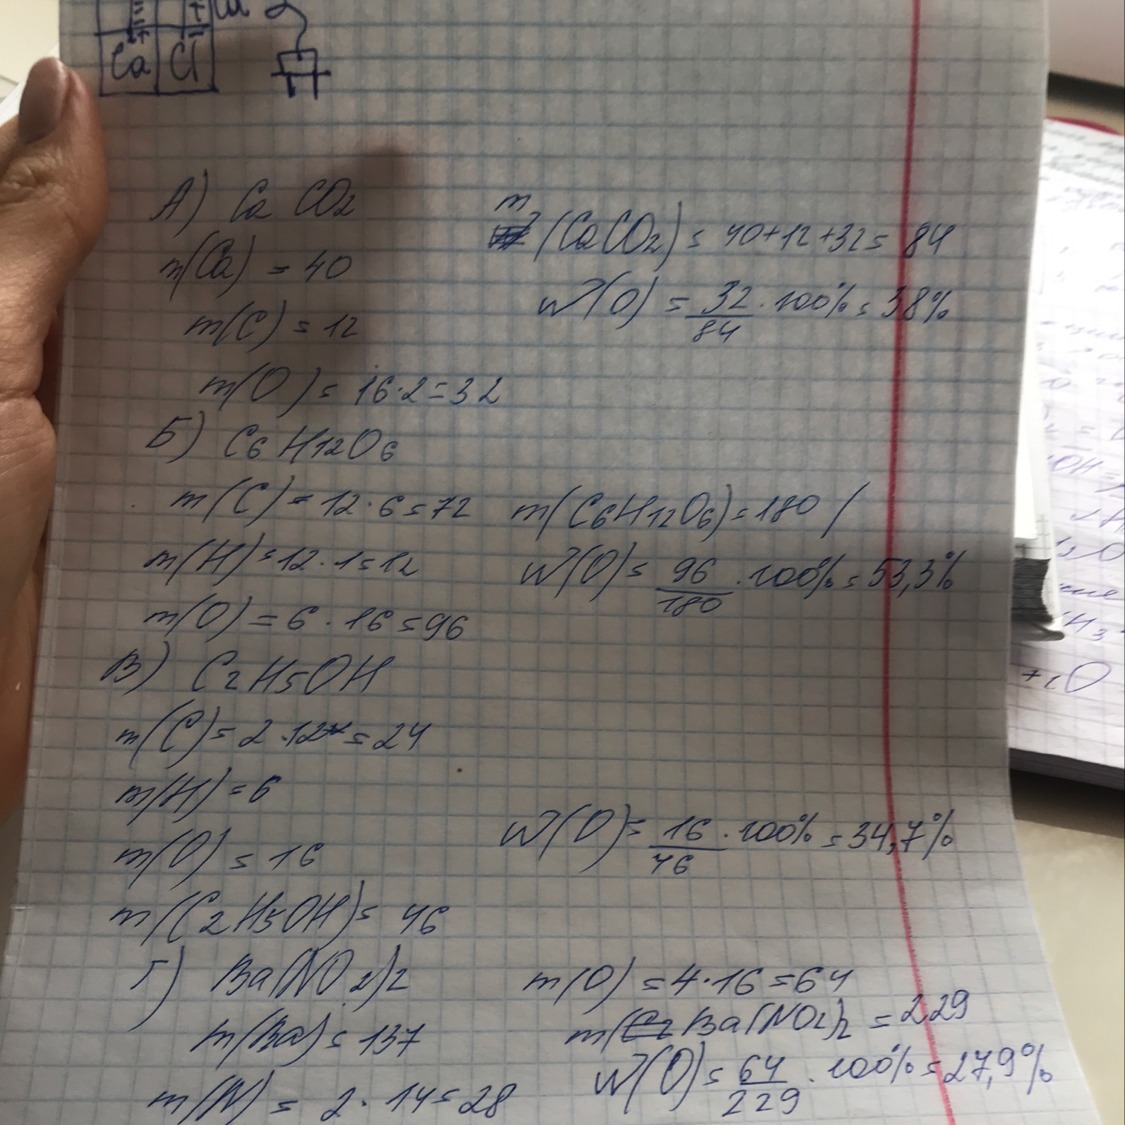 Ca Cl
А) CaCO2
m(Ca) = 40
m(C) = 12
m(O) = 16·2=32
m(CaCO2) = 40+12+32= 84
W(O) = 32/84 · 100% = 38%
Б) C6H12O6
m(C) = 12·6=72
m(H)=12·1=12
m(O) = 6·16=96
m(C6H12O6)=180
W(O) = 96/180 · 100% = 53,3%
В) C2H5OH
m(C)=2·12=24
m(H) = 6
m(O) = 16
m(C2H5OH)= 46
W(O) = 16/46 · 100% = 34,7%
Г) Ba(NO2)2
m(Ba) = 137
m(N) = 2·14=28
m(O) = 4·16=64
m(Ba(NO2)2 = 229
W(O) = 64/229 · 100% = 27,9%